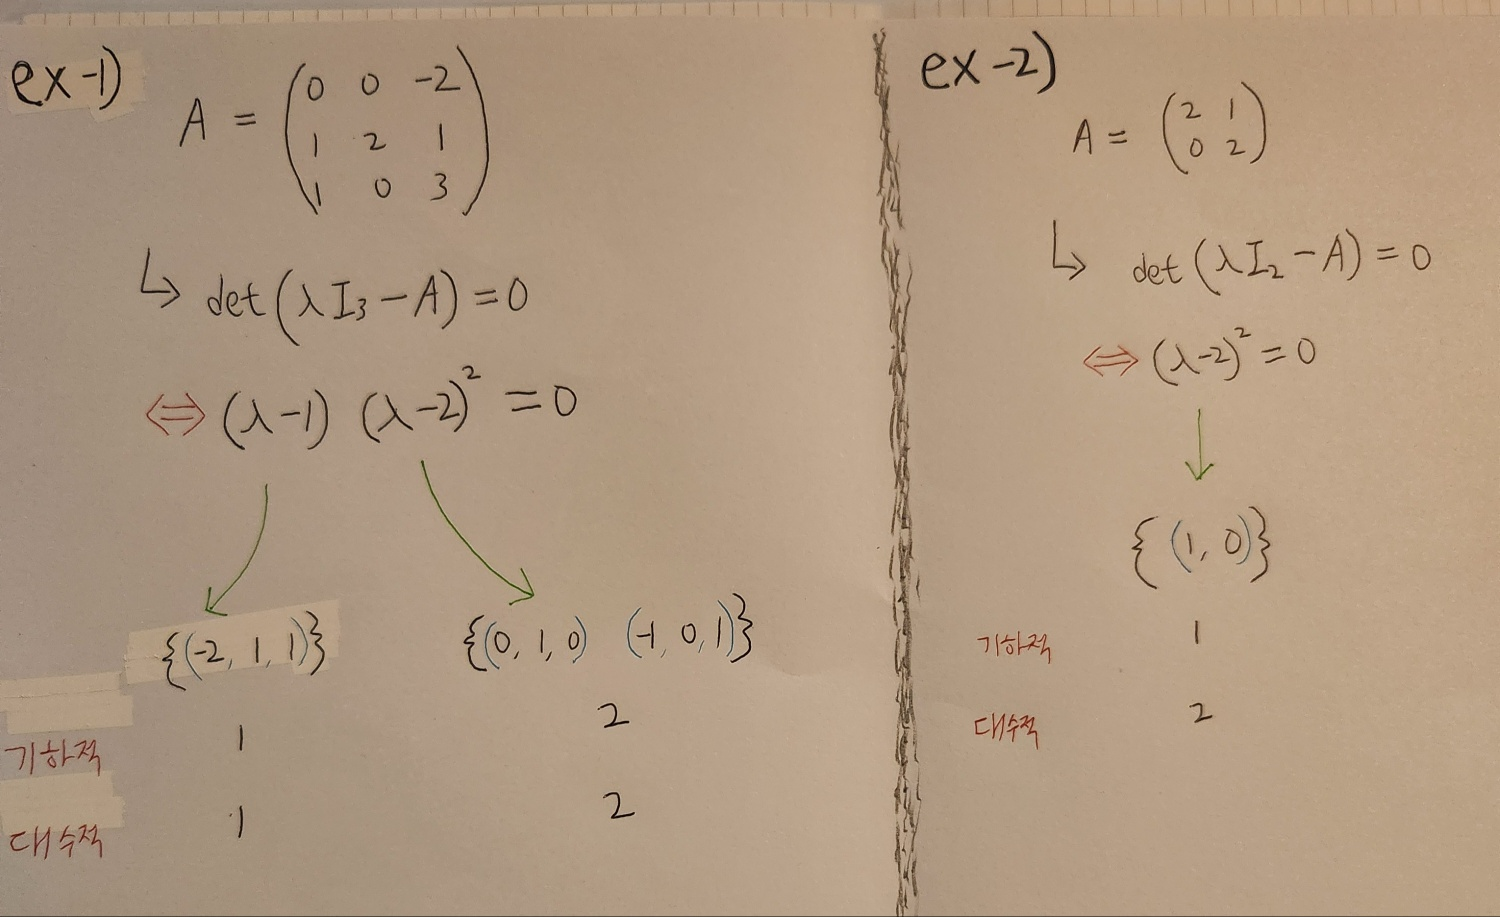 ex-1)
A = (0 0 -2
1 2 1
1 0 3)
↳ det(λI₃-A)=0
⇔ (λ-1) (λ-2)² = 0
{(-2, 1, 1)} {(0, 1, 0) (-1, 0, 1)}
기하적 1 2
대수적 1 2
ex-2)
A = (2 1
0 2)
↳ det(λI₂-A)=0
⇔ (λ-2)² = 0
{(1, 0)}
기하적 1
대수적 2